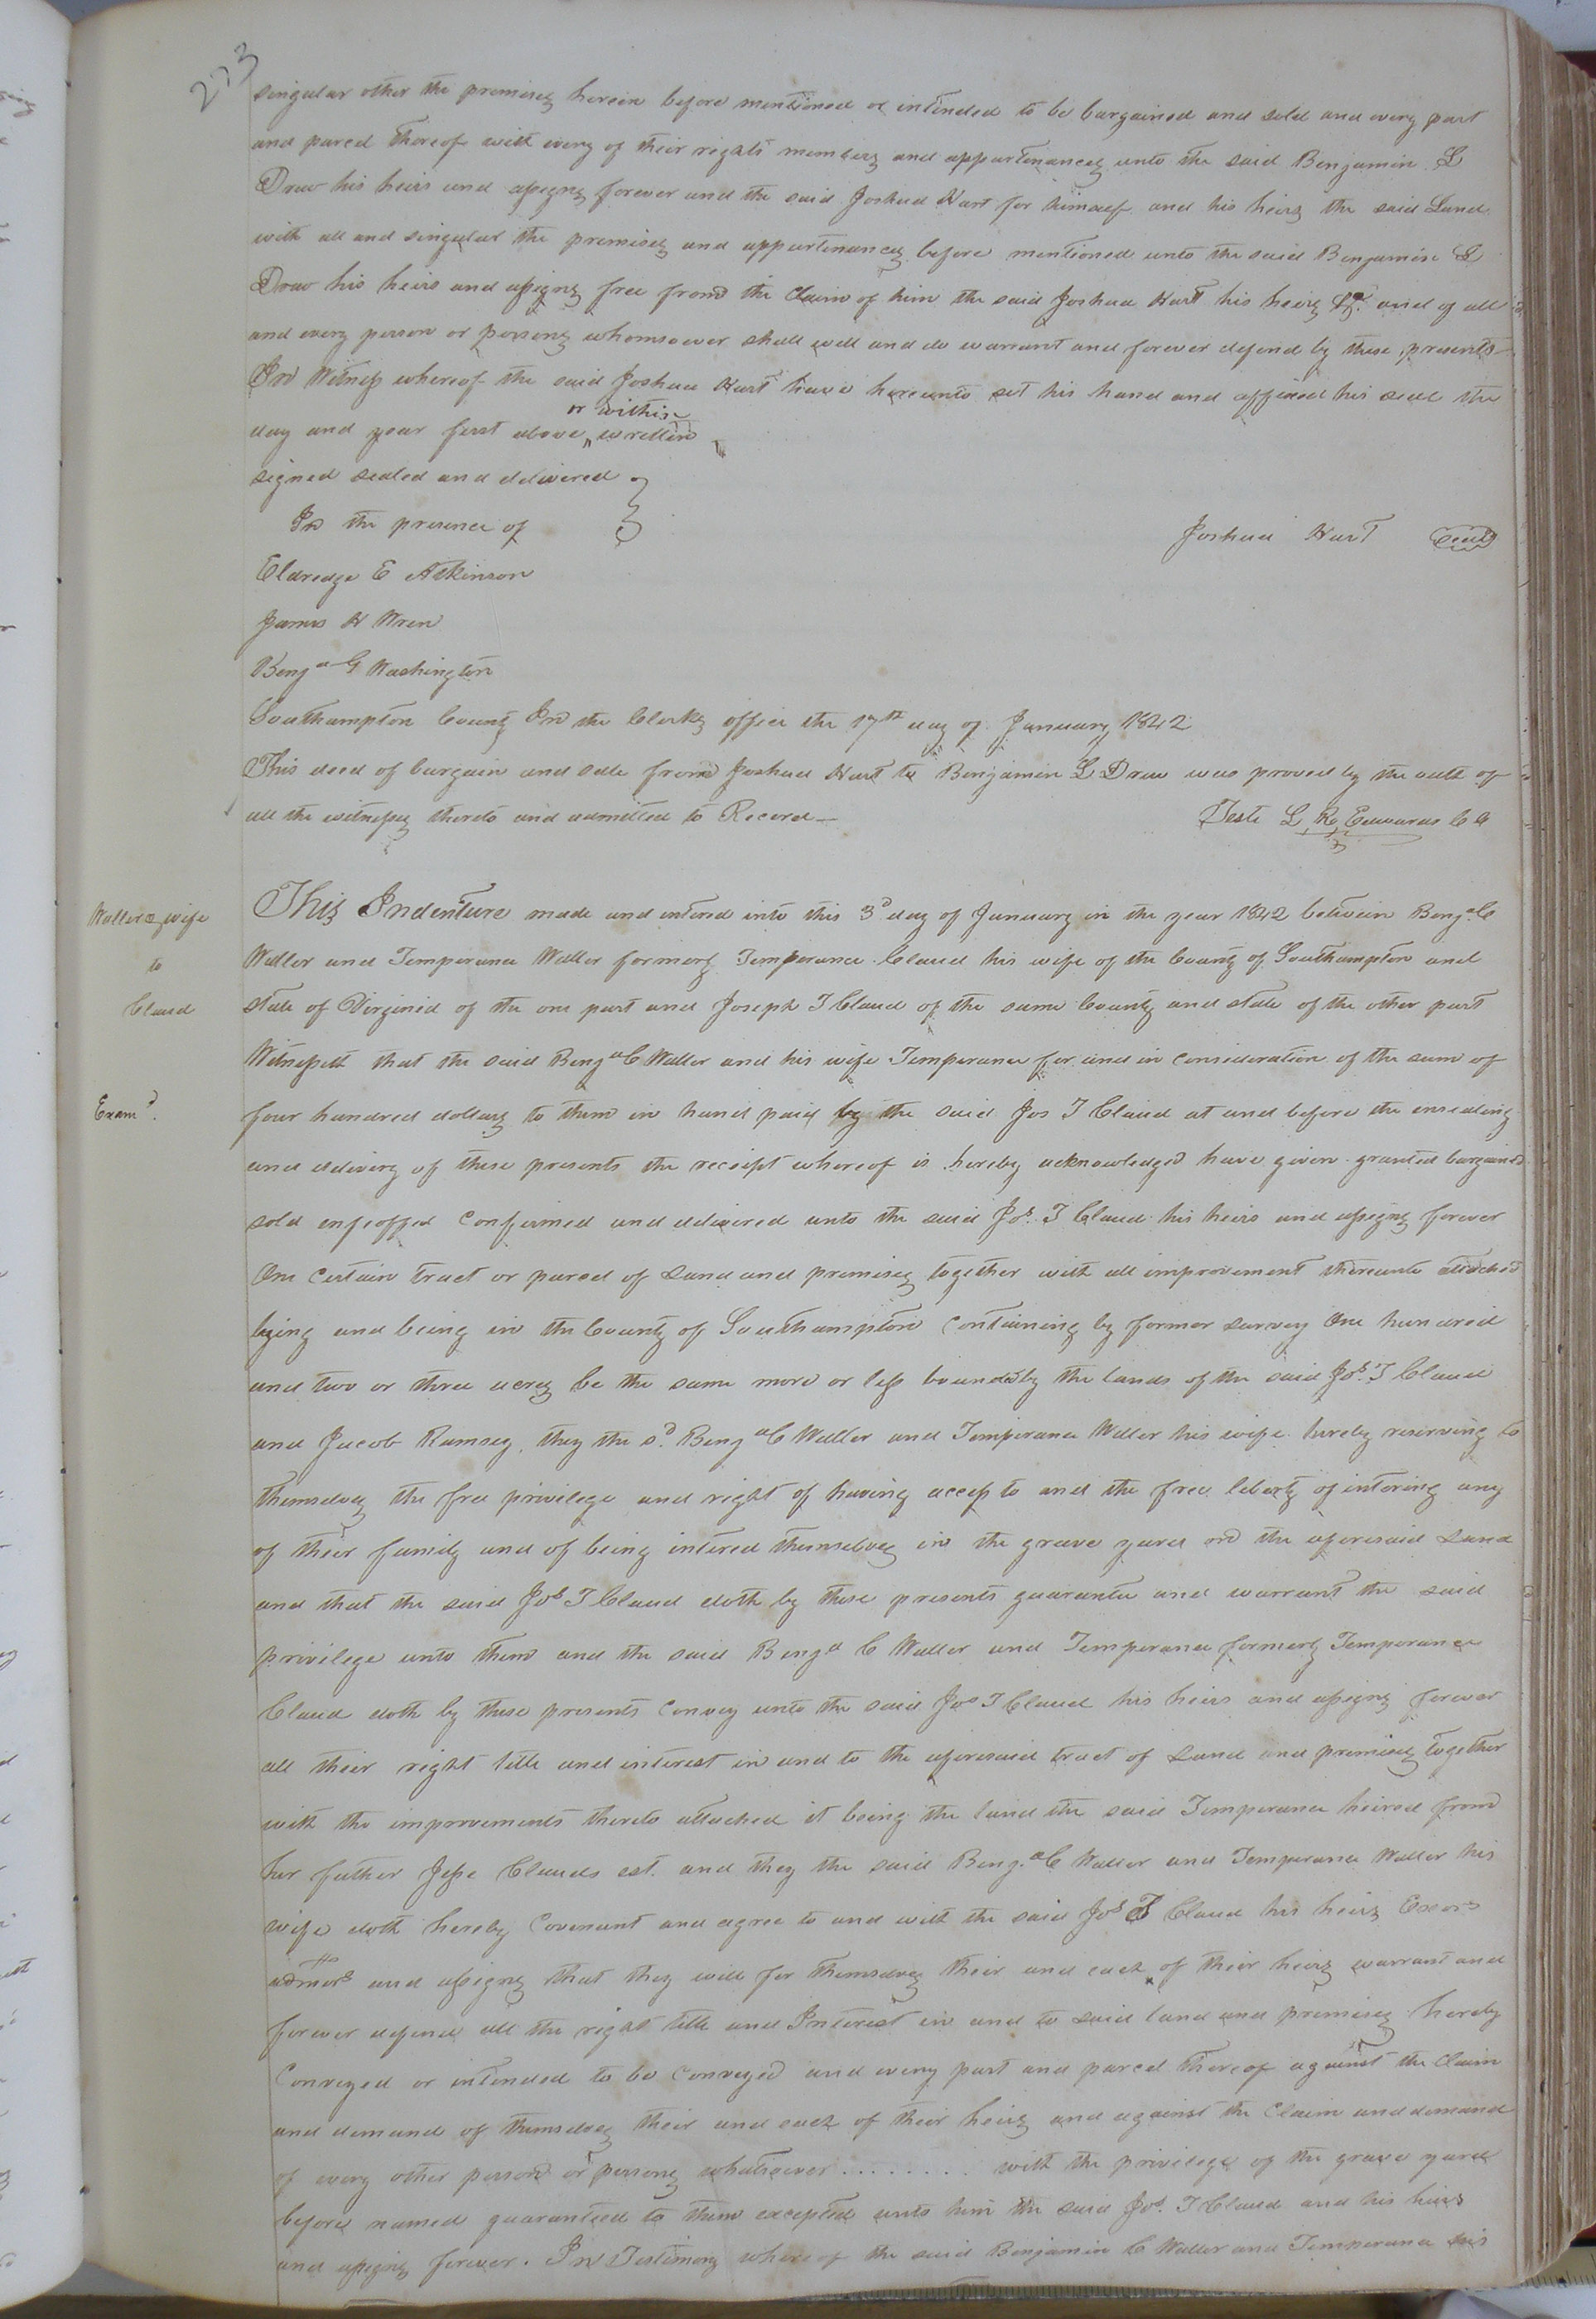 273
singular other the premises herein before mentioned or intended to be bargained and sold and every part
and parcel thereof with every of their rights members and appurtenances unto the said Benjamin L
Drew his heirs and assigns forever and the said Joshua Hart for himself and his heirs the said Land
with all and singular the premises and appurtenances before mentioned unto the said Benjamin L
Drew his heirs and assigns free from the Claim of him the said Joshua Hart his heirs &c. and of all
and every person or persons whomsoever shall will and do warrant and forever defend by these presents
In Witness whereof the said Joshua Hart have hereunto set his hand and affixed his seal the
or within
day and year first above written
signed sealed and delivered
In the presence of
Joshua Hart Seal
Eldredge E Atkinson
James H Wren
Benja G Washington
Southampton County In the Clerks office the 17th day of January 1842
This deed of bargain and sale from Joshua Hart to Benjamin L Drew was proved by the oath of
all the witnesses thereto and admitted to Record
Teste L R Edwards C C
Waller & wife
to
Claud
Examd.
This Indenture made and entered into this 3d day of January in the year 1842 between Benja. C
Waller and Temperance Waller formerly Temperance Claud his wife of the County of Southampton and
state of Virginia of the one part and Joseph T Claud of the same County and state of the other part
Witnesseth that the said Benja C Waller and his wife Temperance for and in consideration of the sum of
four hundred dollars to them in hand paid by the said Jos T Claud at and before the ensealing
and delivery of these presents the receipt whereof is hereby acknowledged have given granted bargained
sold enfeoffed Confirmed and delivered unto the said Jos. T Claud his heirs and assigns forever
One certain tract or parcel of Land and premises together with all improvement thereunto attached
lying and being in the County of Southampton Containing by former survey One hundred
and two or three acres be the same more or less bounded by the lands of the said Jos. T Claud
and Jacob Ramsey, they the sd. Benja C Waller and Temperance Waller his wife hereby reserving to
themselves the free privilege and right of having access to and the free liberty of intering any
of their family and of being intered themselves in the grave yard on the aforesaid Land
and that the said Jos T Claud doth by these presents guarantee and warrant the said
privilege unto them and the said Benja C Waller and Temperance formerly Temperance
Claud doth by these presents Convey unto the said Jos T Claud his heirs and assigns forever
all their right title and interest in and to the aforesaid tract of Land and premises together
with the improvements thereto attached it being the land the said Temperance heired from
her father Jesse Clauds est. and they the said Benja. C Waller and Temperance Waller his
wife doth hereby Covenant and agree to and with the said Jos T Claud his heirs Exors
admors and assigns that they will for themselves their and each of their heirs warrant and
forever defend all the right title and Interest in and to said land and premises hereby
Conveyed or intended to be Conveyed and every part and parcel thereof against the Claim
and demand of themselves their and each of their heirs and against the Claim and demand
of every other person or persons whatsoever ........ with the privilege of the grave yard
before named guaranteed to them excepted unto him the said Jos. T Claud and his heirs
and assigns forever. In Testimony whereof the said Benjamin C Waller and Temperance his